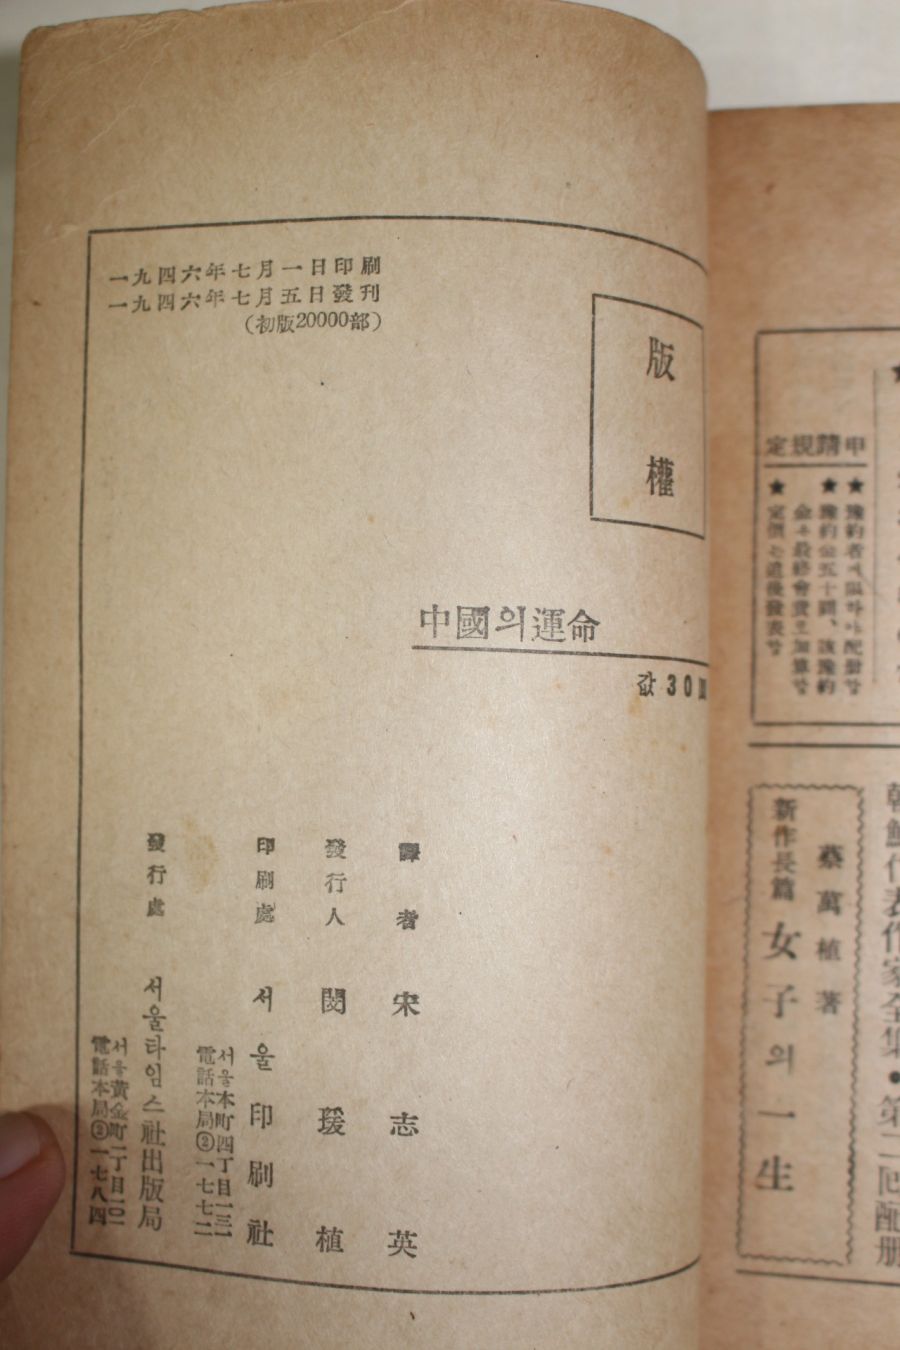 一九四六年七月一日印刷
一九四六年七月五日發刊
(初版20000部)
版權
中國의運命
값30
譯者 宋志英
發行人 閔瑗植
印刷處 서울印刷社
서울本町四丁目一三一
電話本局②一七七二
發行處 서울타임스社出版局
서울黃金町二丁目一〇一
電話本局②一七八四
申請規定
★豫約者에限하야配給함
★豫約金五十圓、該豫約
金은最終會費로加算함
★定價는追後發表함
朝鮮代表作家全集●第二回配册
蔡萬植著
新作長篇 女子의一生